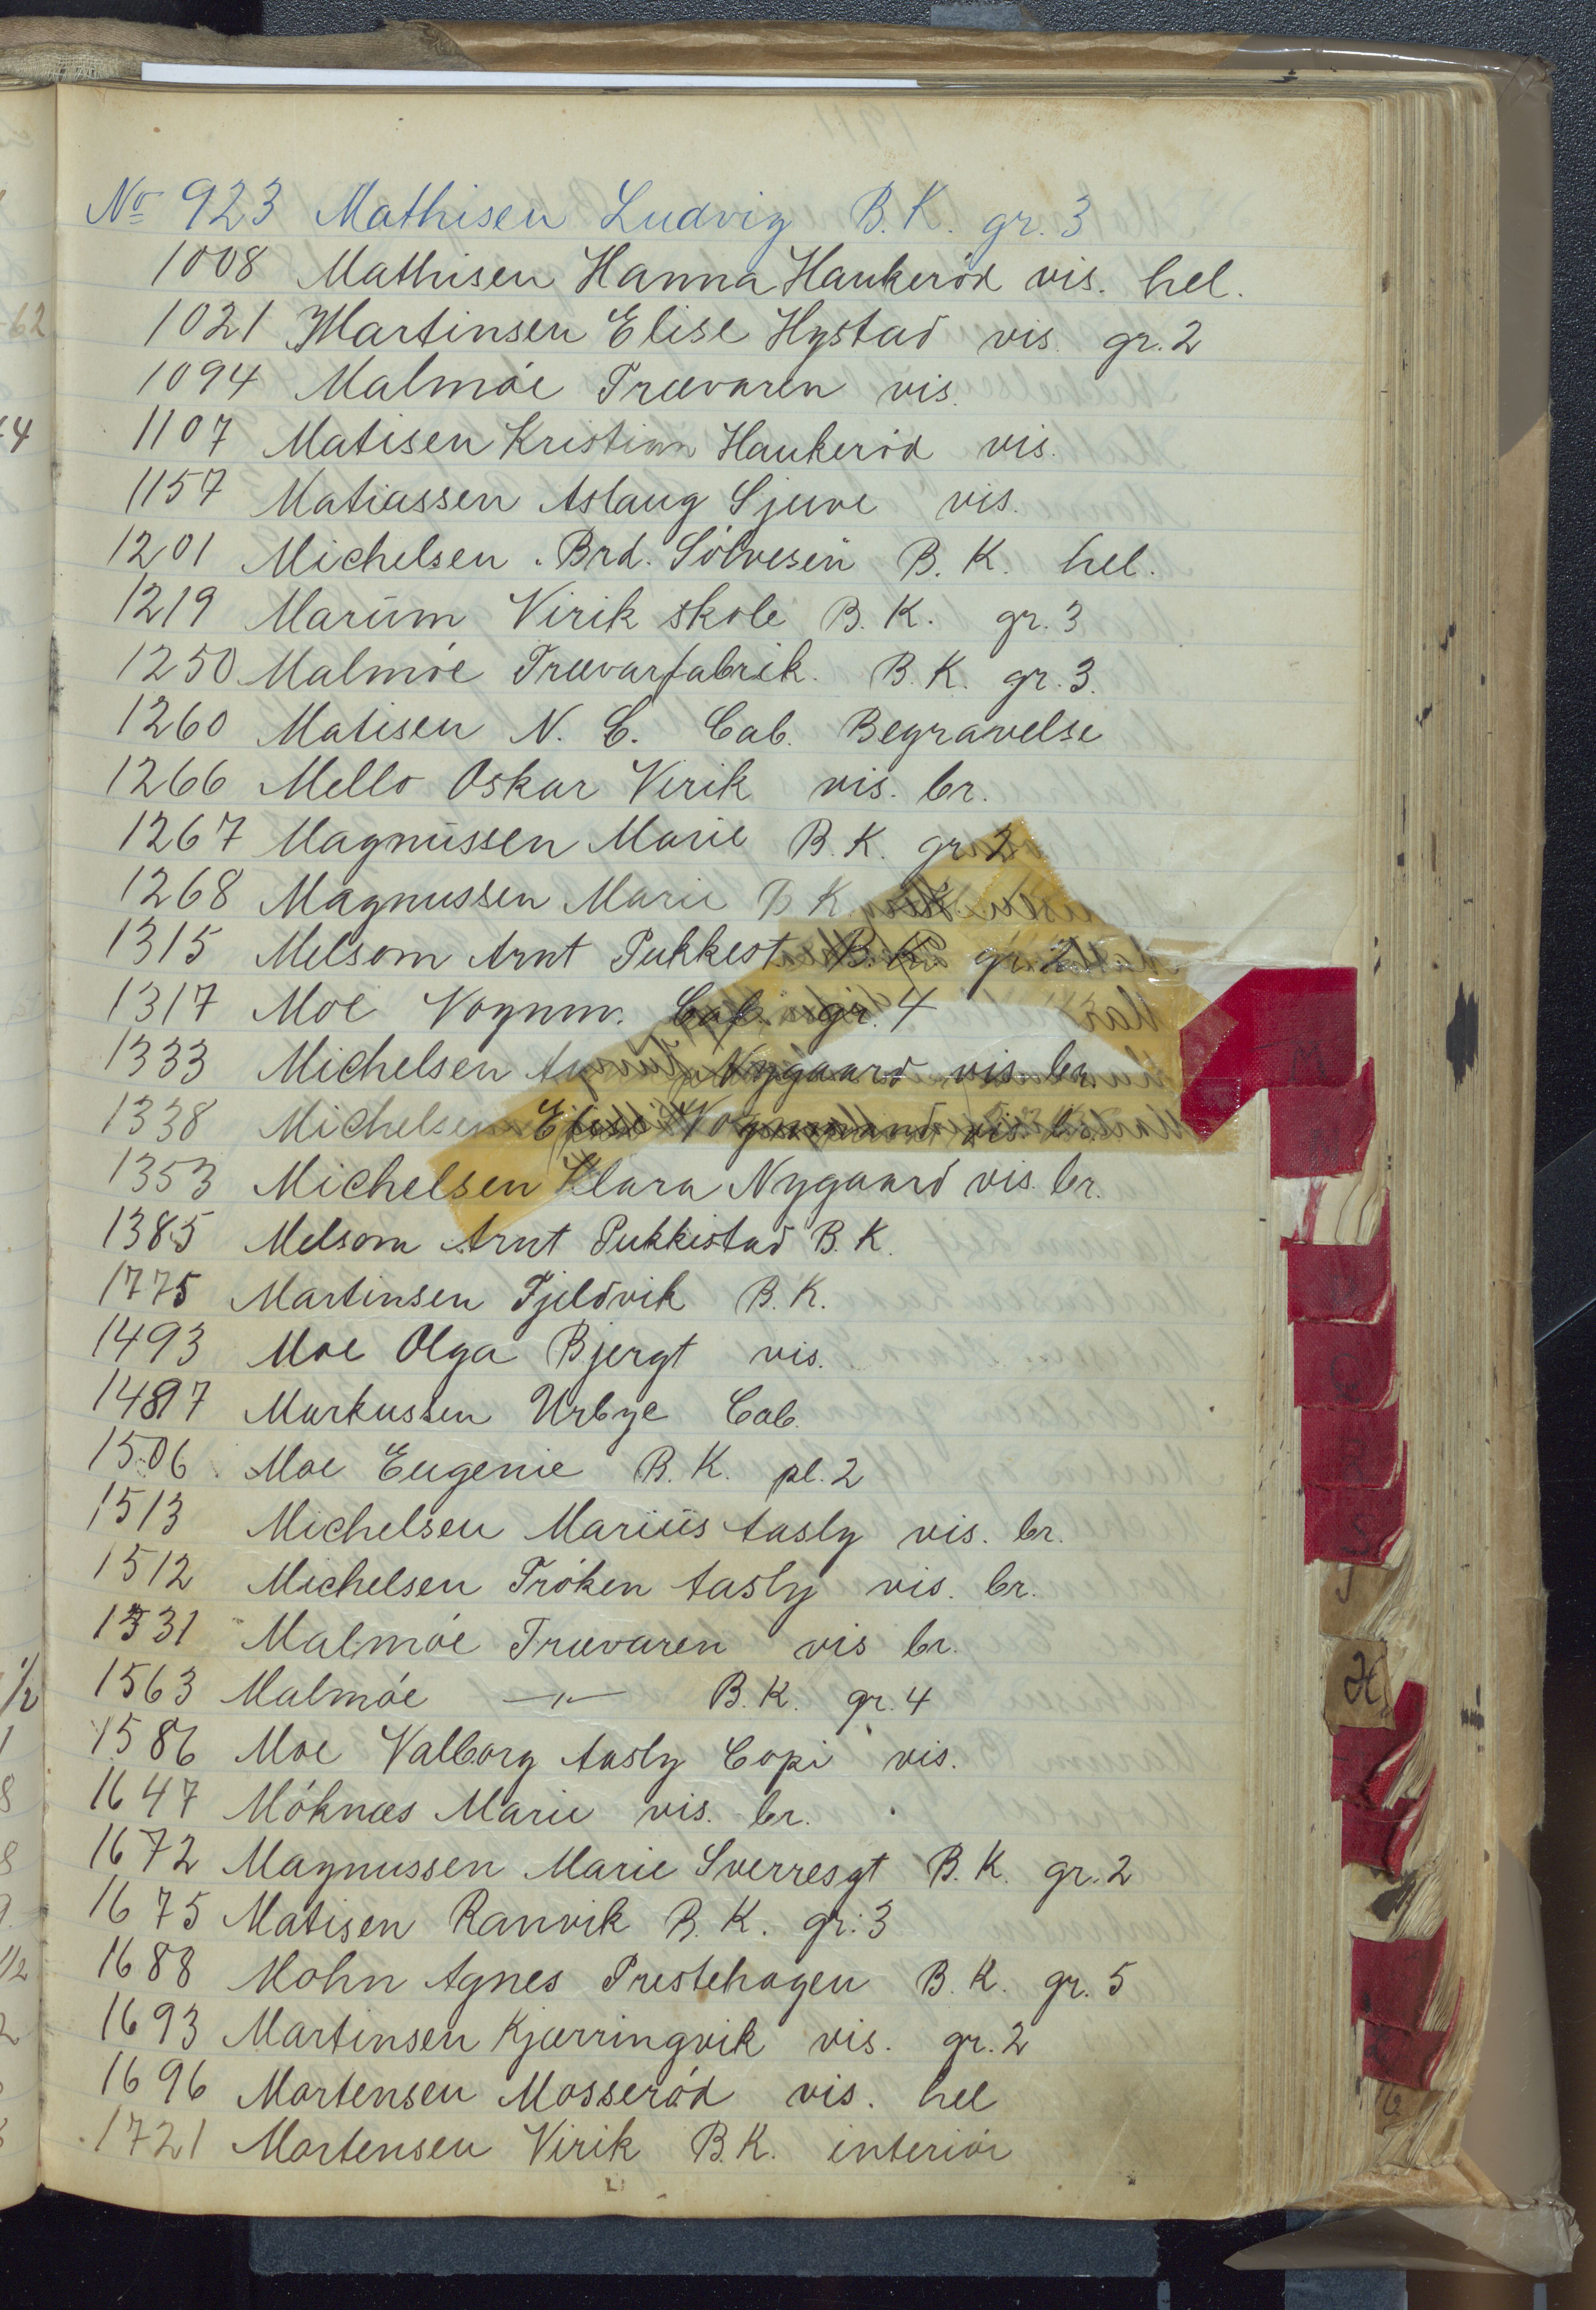 No 923 Mathisen Ludvig B.K. gr. 3
1008 Mathisen Hanna Haukeród vis. hel.
1021 Martinsen Elise Hystad vis. gr. 2
1094 Malmóe Trævaren vis.
1107 Matisen Kristian Haukeród vis.
1157 Matiassen Aslaug Sjuve vis.
1201 Michelsen. Brd. Sólvesen B. K. hel.
1219 Marŭm Virik skole B. K. gr. 3
1250 Malmóe Trævarfabrik. B. K. gr. 3.
1260 Matisen N. C. Cab. Begravelse
1266 Mello Oskar Virik vis. br.
1267 Magnŭssen Marie B. K. gr. 2
1268 Magnussen Marie B K
1315 Melsom Arnt Pukkest. B. K. gr. 2
1317 Moe Vognm. Cab. gr. 4
1333 Michelsen Nygaard vis. br.
1338 Michelsen Elise Vognmand vis. br.
1353 Michelsen Klara Nygaard vis. br.
1385 Melsom Arnt Pukkistad B. K.
1775 Martinsen Fjeldvik B. K.
1493 Moe Olga Bjergt vis.
1497 Markussen Urbye Cab.
1506 Moe Eugenie B. K. pl. 2
1513 Michelsen Mariŭs Aasly vis. br.
1512 Michelsen Fróken Aasly vis. br.
1531 Malmóe Trævaren vis br.
1563 Malmóe —„— B. K. gr. 4
1586 Moe Valborg Aasly Copi vis.
1647 Móknæs Marie vis. br.
1672 Magnussen Marie Sverresgt B. K. gr. 2
1675 Matisen Ranvik B. K. gr. 3
1688 Mohn Agnes Prestehagen B. K. gr. 5
1693 Martinsen Kjærringvik vis. gr. 2
1696 Mortensen Mosseród vis. hel
1721 Mortensen Virik B. K. interiór
M